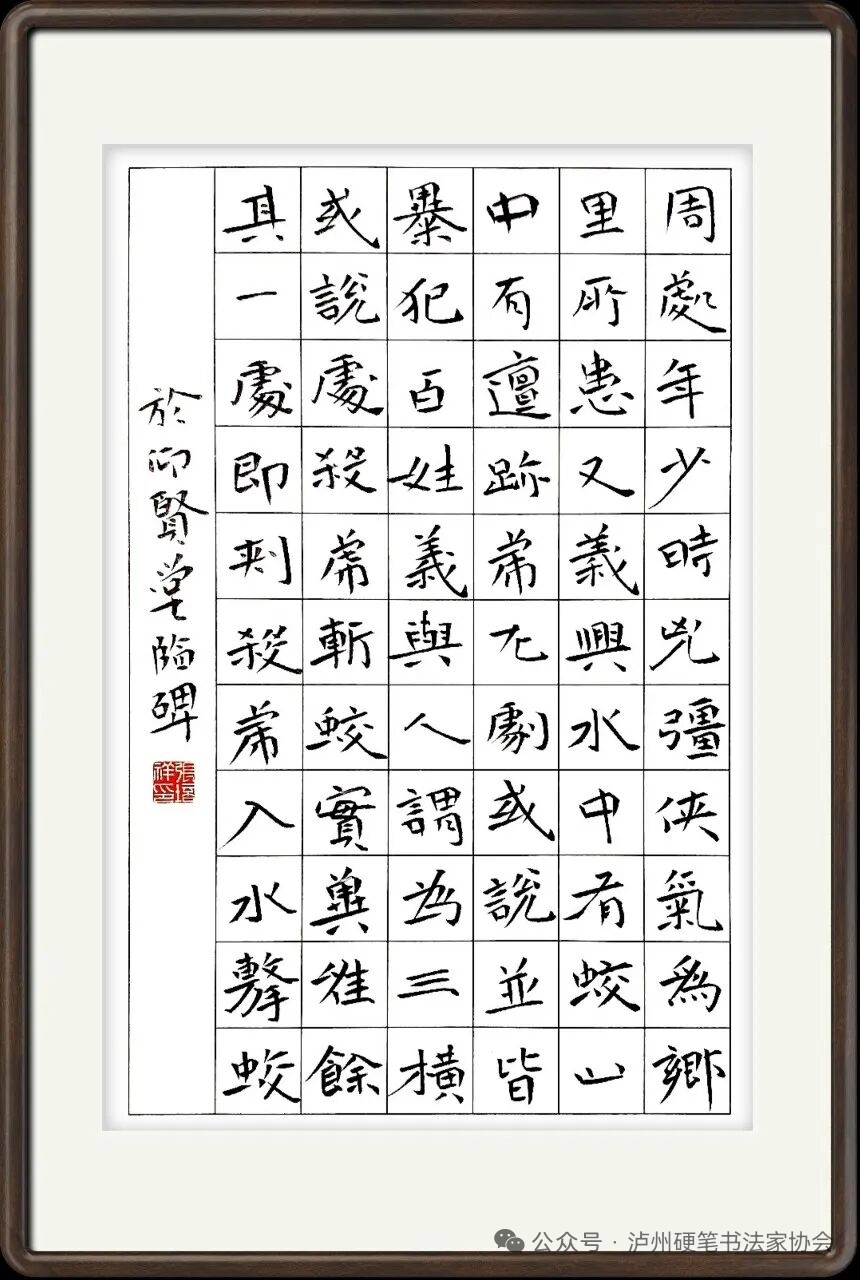 周處年少時兇彊侠氣為鄉
里所患又義興水中有蛟山
中有邅跡虎尤劇或說並皆
暴犯百姓義與人謂為三橫
或說處殺虎斬蛟實冀唯餘
其一處即刺殺虎入水擊蛟
於仰賢堂臨碑
公众号 · 泸州硬笔书法家协会